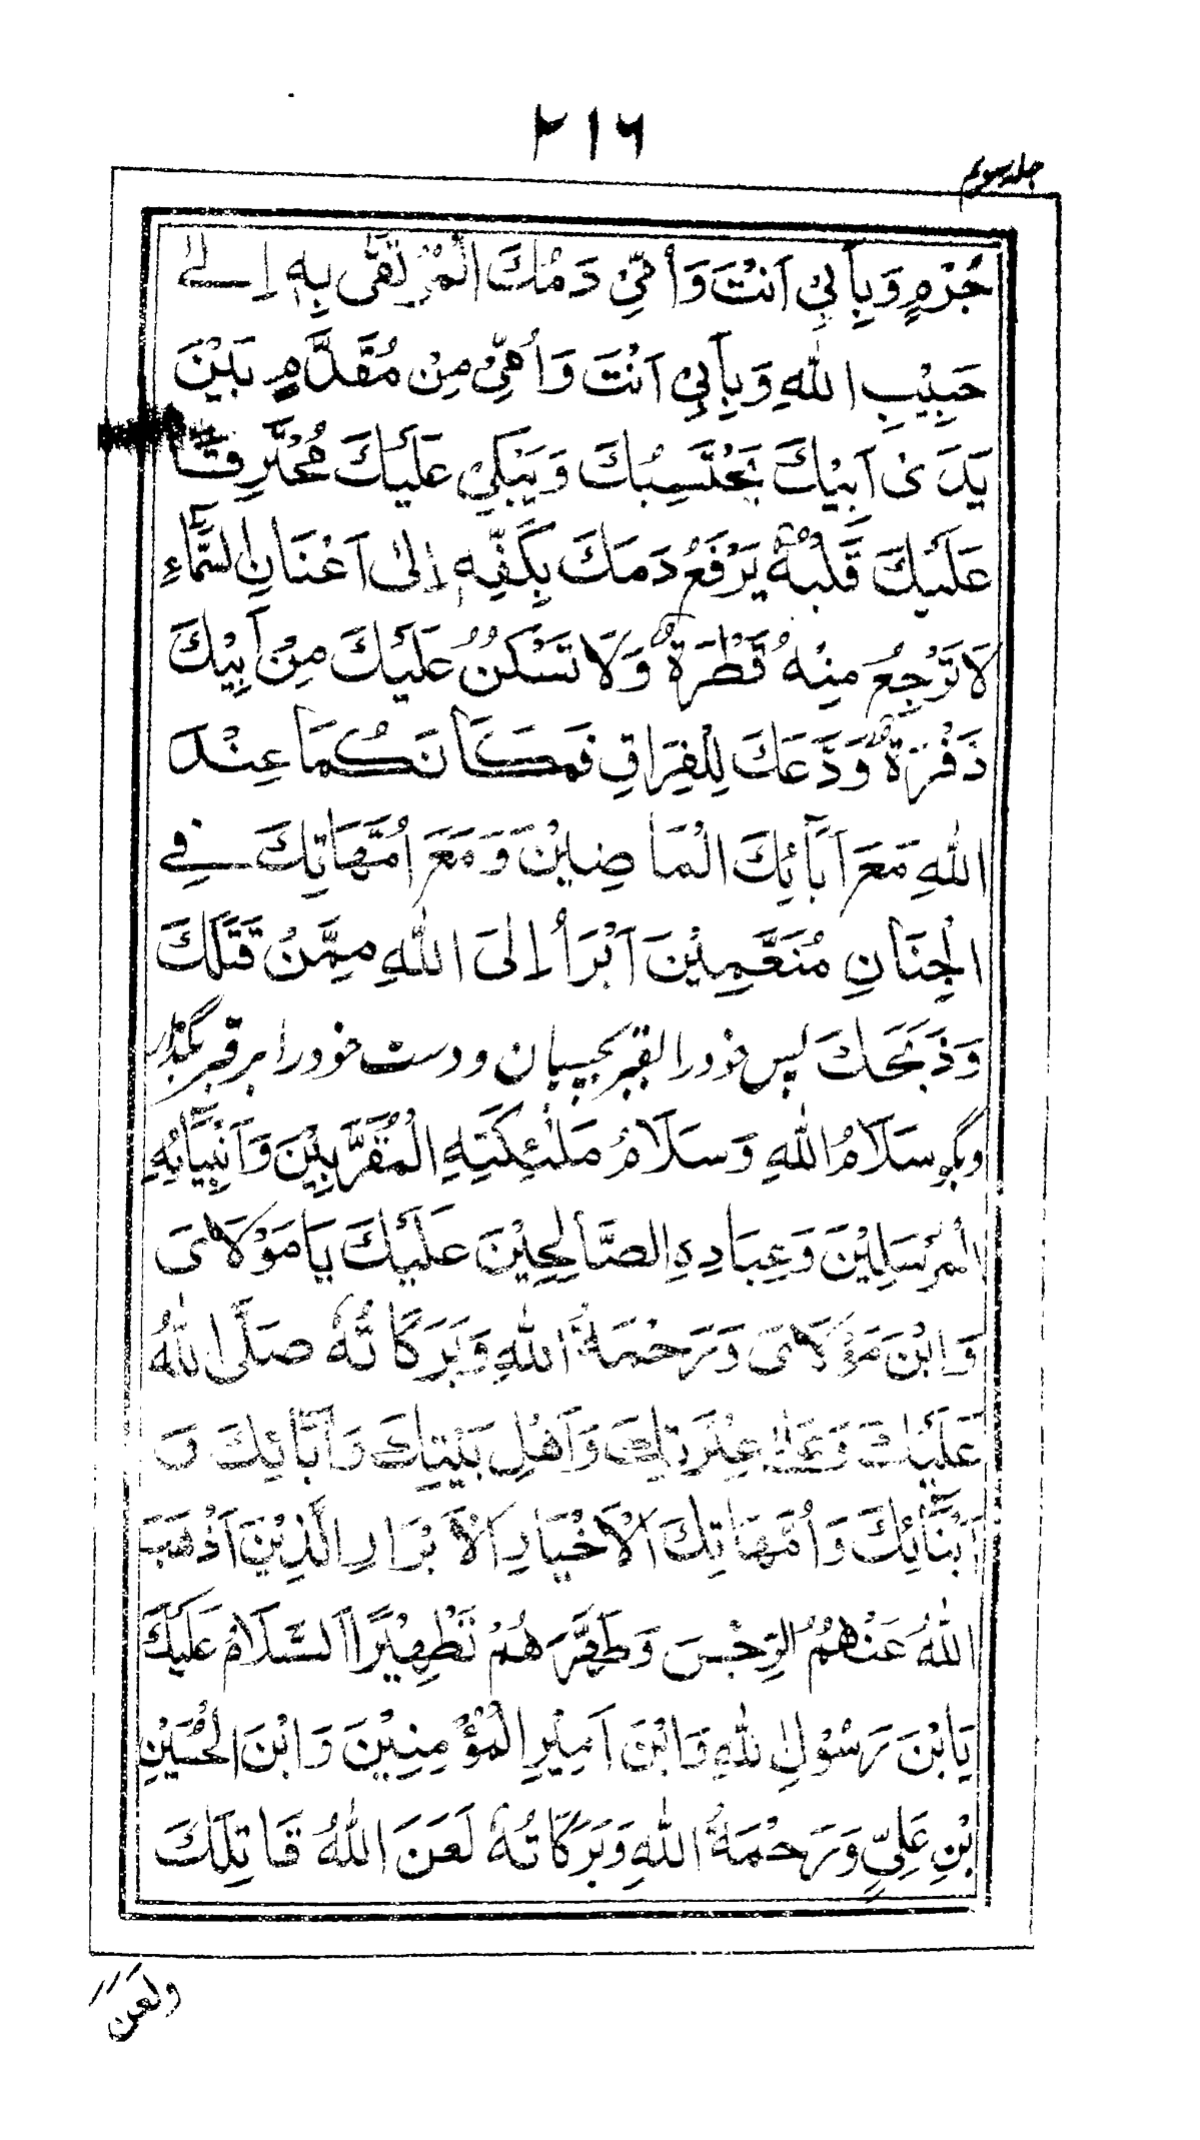 ۲۱۶
جلد سویم
جُرْمٍ وَبِأَبِي اَنْتَ وَأُمِّي دَمُكَ الْمُرْتَقٰى بِهِ اِلٰى
حَبِيْبِ اللهِ وَبِأَبِي اَنْتَ وَأُمِّي مِنْ مُقَدَّمٍ بَيْنَ
يَدَىْ اَبِيْكَ يَحْتَسِبُكَ وَيَبْكِي عَلَيْكَ مُحْتَرِقًا
عَلَيْكَ قَلْبُهُ يَرْفَعُ دَمَكَ بِكَفِّهِ اِلٰى اَعْنَانِ السَّمَاءِ
لَا تَرْجِعُ مِنْهُ قَطْرَةٌ وَلَا تَسْكُنُ عَلَيْكَ مِنْ اَبِيْكَ
ذَفْرَةٌ وَدَّعَكَ لِلْفِرَاقِ فَمَكَانَكُمَا عِنْدَ
اللهِ مَعَ آبَائِكَ الْمَاضِيْنَ وَمَعَ اُمَّهَاتِكَ فِي
الْجِنَانِ مُنَعَّمِيْنَ اَبْرَأُ اِلَى اللهِ مِمَّنْ قَتَلَكَ
وَذَبَحَكَ پس خودرا بقبر بچسپان ودست خودرا بر قبر بگذار
وبگو سَلَامُ اللهِ وَسَلَامُ مَلٰئِكَتِهِ الْمُقَرَّبِيْنَ وَاَنْبِيَائِهِ
الْمُرْسَلِيْنَ وَعِبَادِهِ الصَّالِحِيْنَ عَلَيْكَ يَا مَوْلَاىَ
وَابْنَ مَوْلَاىَ وَرَحْمَةُ اللهِ وَبَرَكَاتُهُ صَلَّى اللهُ
عَلَيْكَ وَعَلٰى عِتْرَتِكَ وَاَهْلِ بَيْتِكَ وَآبَائِكَ وَ
اَبْنَائِكَ وَاُمَّهَاتِكَ الْاَخْيَارِ الْاَبْرَارِ الَّذِيْنَ اَذْهَبَ
اللهُ عَنْهُمُ الرِّجْسَ وَطَهَّرَهُمْ تَطْهِيْرًا اَلسَّلَامُ عَلَيْكَ
يَا بْنَ رَسُوْلِ اللهِ وَابْنَ اَمِيْرِ الْمُؤْمِنِيْنَ وَابْنَ الْحُسَيْنِ
بْنِ عَلِيٍّ وَرَحْمَةُ اللهِ وَبَرَكَاتُهُ لَعَنَ اللهُ قَاتِلَكَ
ولَعَنَ